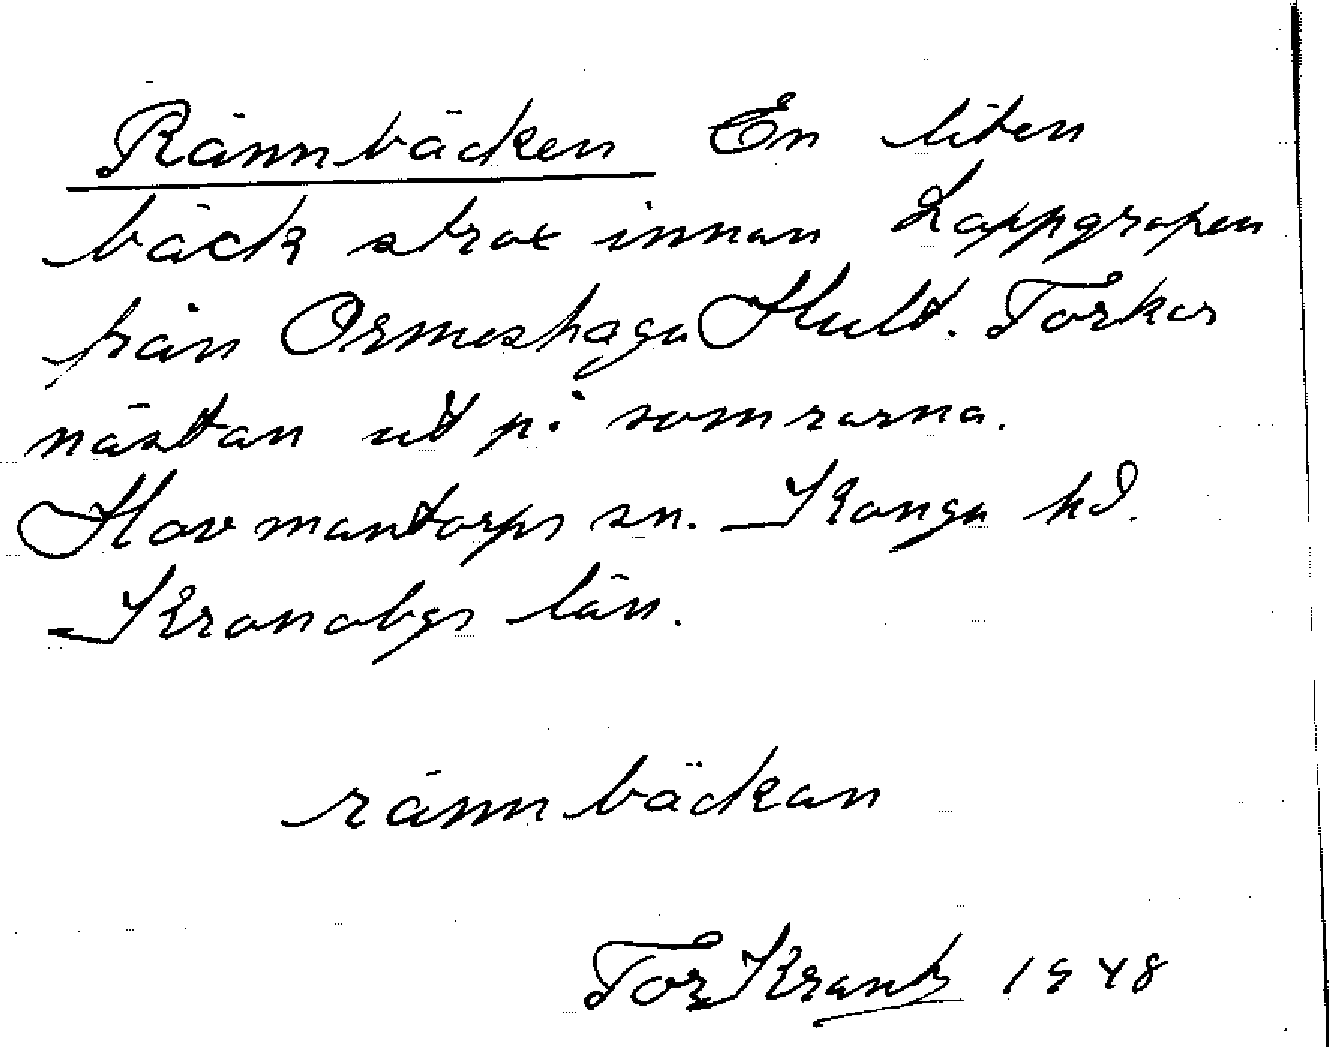 Rännbäcken En liten
bäck strax innan Lappgropen
från Ormeshaga Hult. Torkar
nästan ut på somrarna.
Hovmantorps sn. Konga hd.
Kronobgs län.
rännbäckan
Tor Krantz 1948